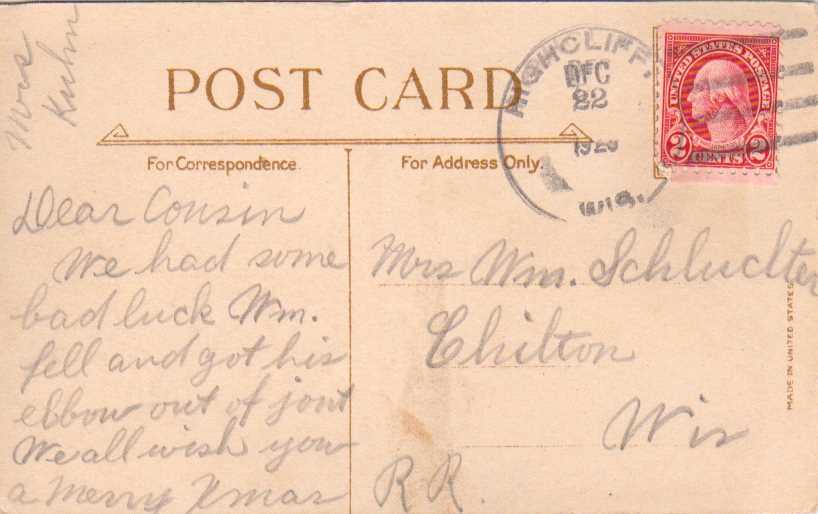 Mrs
Kuhn
POST CARD
For Correspondence.
For Address Only.
HIGHCLIFF.
DEC
22
WIS.
UNITED STATES POSTAGE
2 CENTS 2
Dear Cousin
We had some
bad luck Wm.
fell and got his
elbow out of joint
We all wish you
a Merry Xmas
Mrs Wm. Schluchter
Chilton
Wis
R R.
MADE IN UNITED STATES